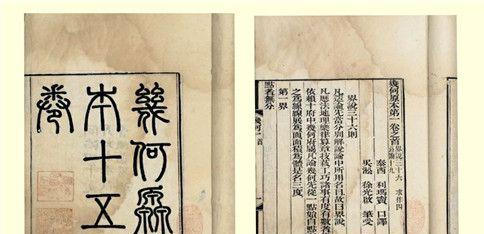 幾何原
本十五
卷
幾何原本第一卷之首 界說三十六 求作四 公論十九
泰西 利瑪竇 口譯
吳淞 徐光啟 筆受
界說三十六則
凡造論先當分別解說論中所用名目故曰界說
凡歷法地理樂律算章技藝工巧諸事有度有數者皆
依賴十府中幾何府屬凡論幾何先從一點始自點引
之為線線展為面面積為體是名三度
第一界
點者無分